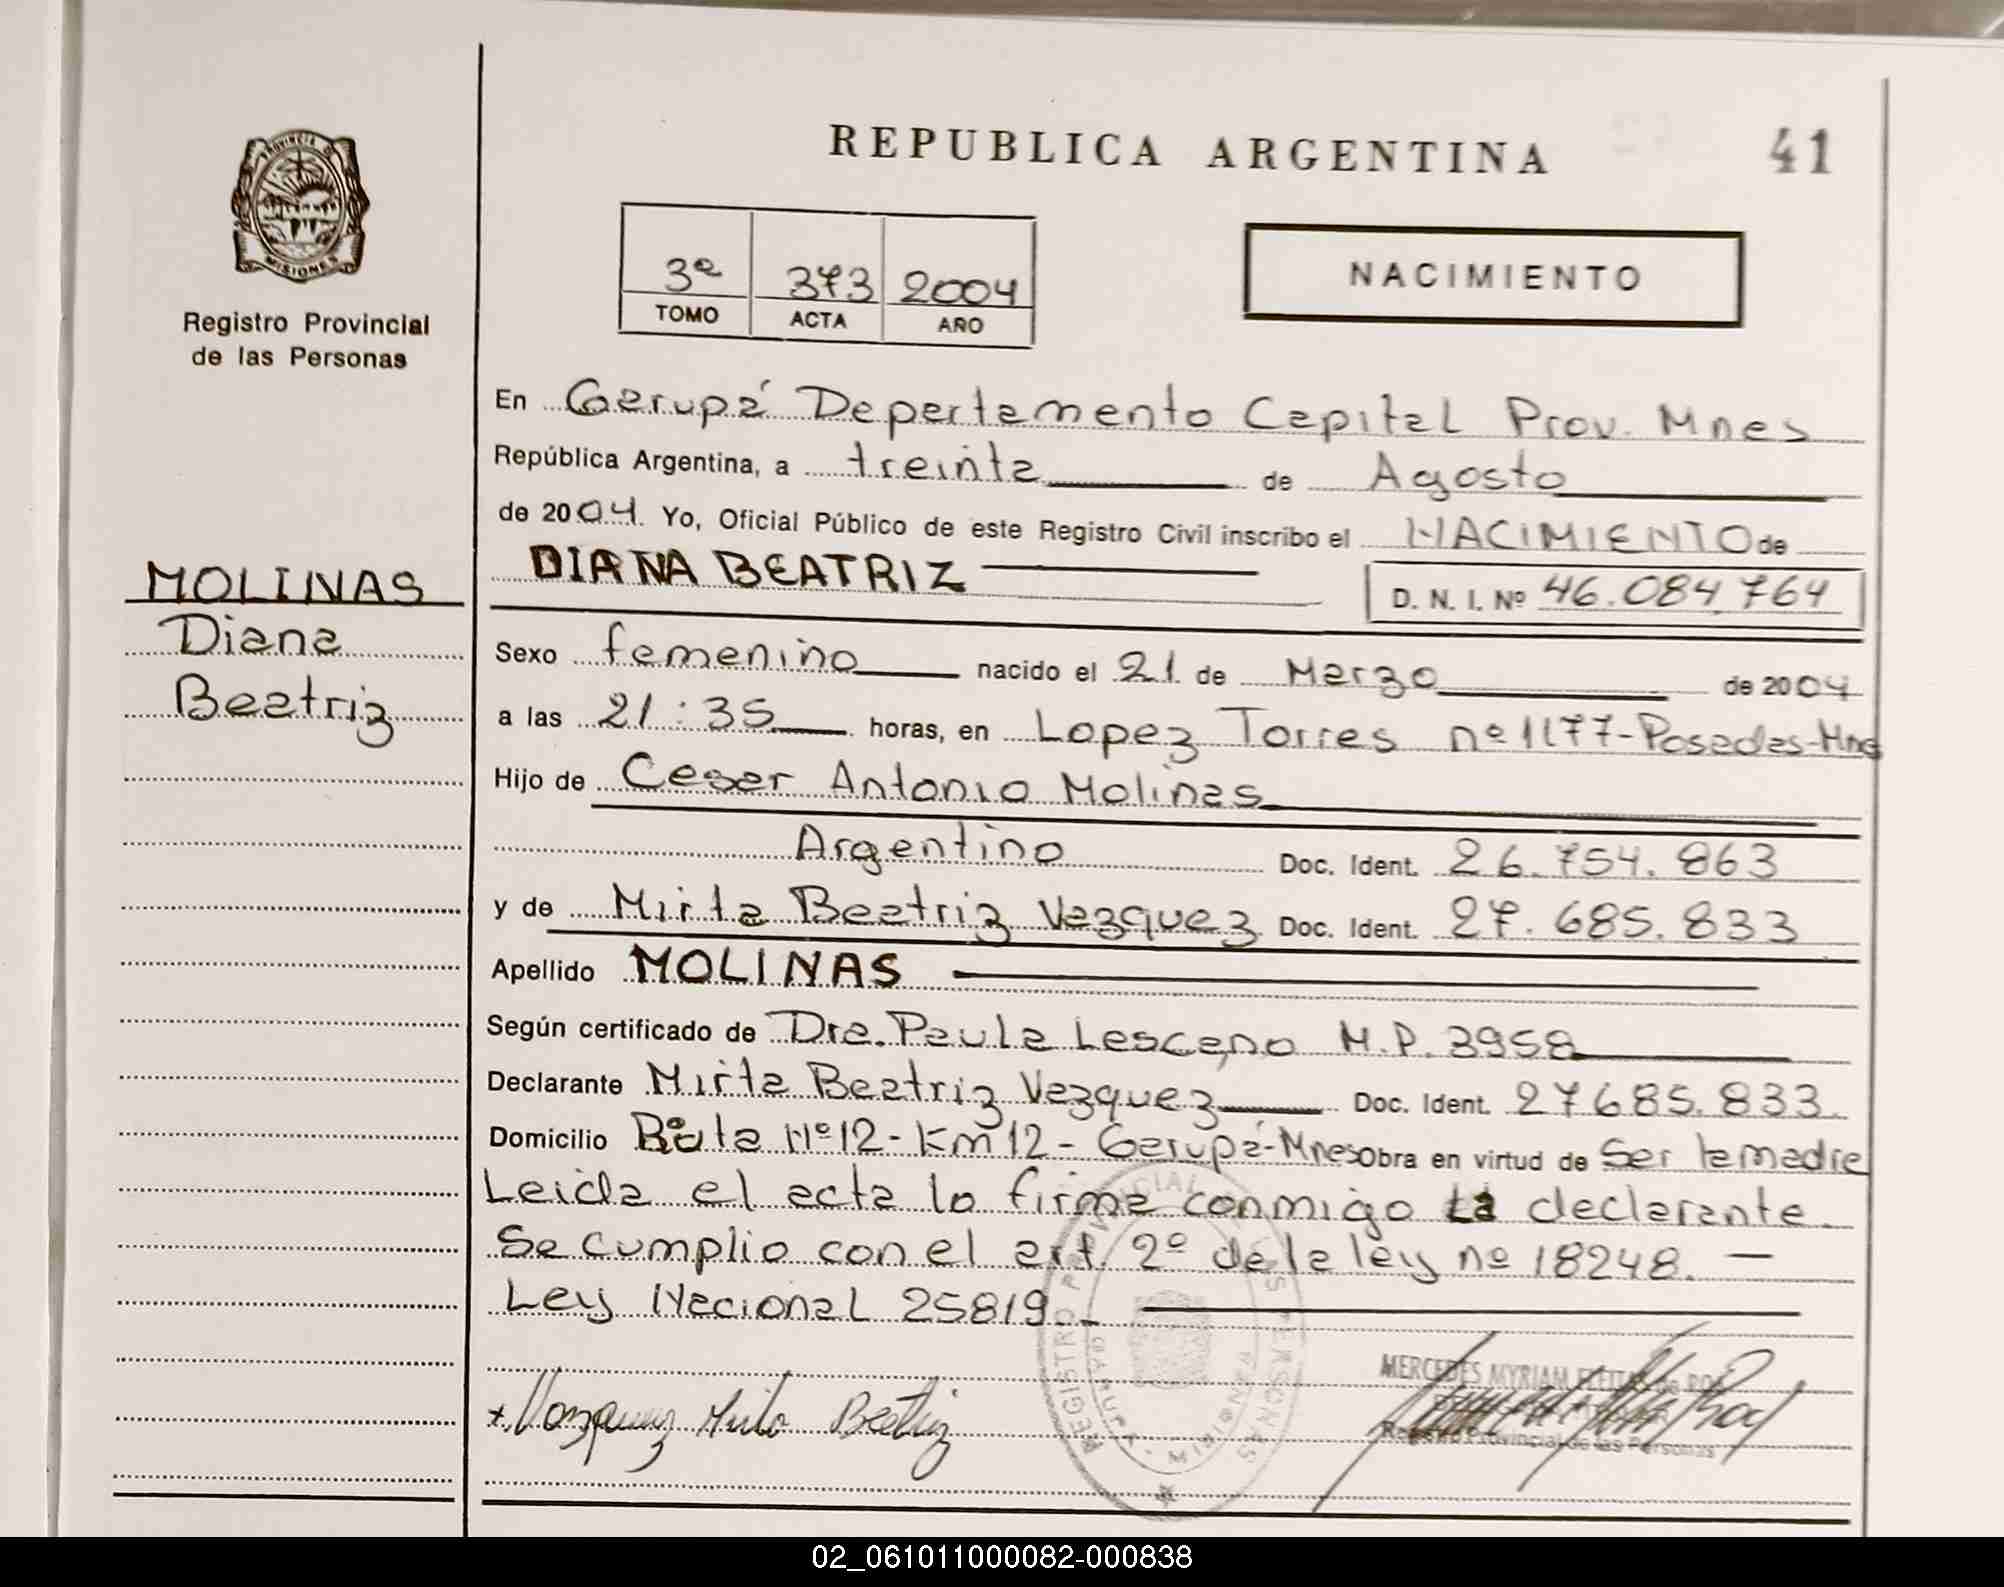 REPUBLICA ARGENTINA
41
PROVINCIA D
MISIONES
Registro Provincial
de las Personas
3º 373 2004
TOMO ACTA AÑO
NACIMIENTO
En Garupá Departamento Capital Prov. Mnes
República Argentina, a treinta de Agosto
de 2004. Yo, Oficial Público de este Registro Civil inscribo el NACIMIENTO de
DIANA BEATRIZ
D. N. I. Nº 46.084.764
MOLINAS
Diana
Beatriz
Sexo femenino nacido el 21 de Marzo de 2004
a las 21:35 horas, en Lopez Torres nº 1177-Posadas-Mnes
Hijo de Cesar Antonio Molinas
Argentino Doc. Ident. 26.754.863
y de Mirta Beatriz Vazquez Doc. Ident. 27.685.833
Apellido MOLINAS
Según certificado de Dra. Paula Lescano M.P. 3958
Declarante Mirta Beatriz Vazquez Doc. Ident. 27685.833
Domicilio Ruta Nº12-Km 12-Garupá-Mnes Obra en virtud de Ser la madre
Leida el acta lo firma conmigo la declarante.
Se cumplio con el art. 2º de la ley nº 18248.
Ley Nacional 25819.
x Vazquez Mirta Beatriz
REGISTRO PROVINCIAL PERSONAS
GARUPA
MERCEDES MYRIAM
Registro Provincial de las Personas
02_061011000082-000838